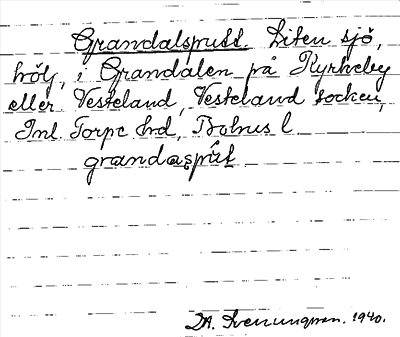 Grandalsputt. Liten sjö,
hölj, i Grandalen på Kyrkeby
eller Vesteland, Vesteland socken,
Inl. Torpe hd, Bohus l
grandaspút
D.A. Svenungson. 1940.